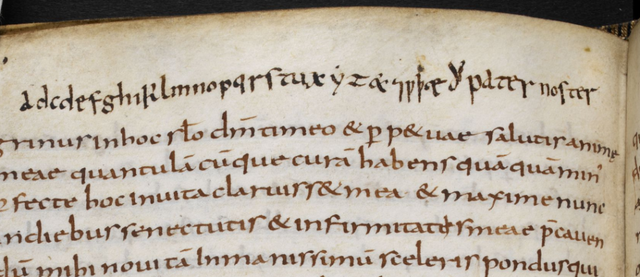 adcdefghiklmnopqrstuxyz& pater noster
grinus in hoc sclo dn̄m timeo & ꝑ p&uae salutis animę
meae quantulācūque curā habens quāquam min'
fecte hoc inuita clariuss& mea & maxime nunc
indiebus senectutis & infirmitatis meae p̄cauen
dū mihi noui tā Inmanissimū sceleris pondusqui